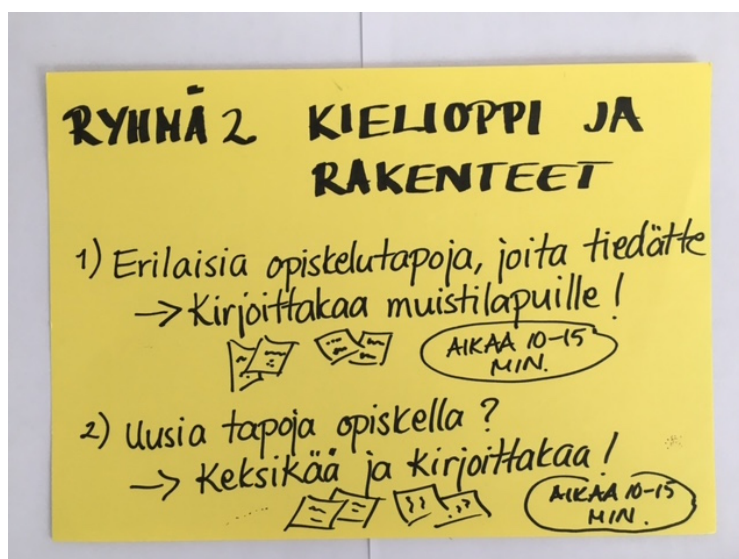 RYHMÄ 2 KIELIOPPI JA
RAKENTEET
1) Erilaisia opiskelutapoja, joita tiedätte
→ Kirjoittakaa muistilapuille!
AIKAA 10-15
MIN.
2) Uusia tapoja opiskella?
→ Keksikää ja kirjoittakaa!
AIKAA 10-15
MIN.